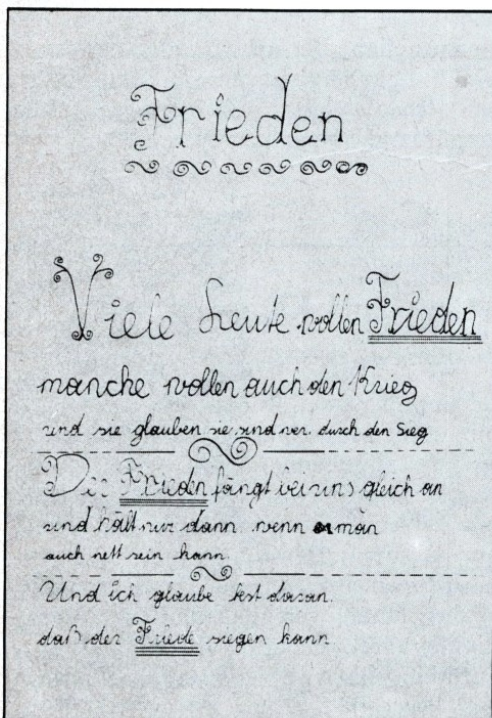 Frieden
Viele Leute wollen Frieden
manche wollen auch den Krieg
und sie glauben sie sind wer durch den Sieg
Der Frieden fängt bei uns gleich an
und hält nur dann wenn man
auch nett sein kann.
Und ich glaube fest daran.
daß der Friede siegen kann